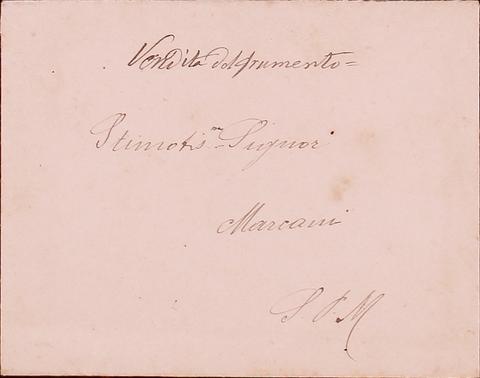 Vendita del frumento=
Stimatis.m Signor
Marcani
S. P. M